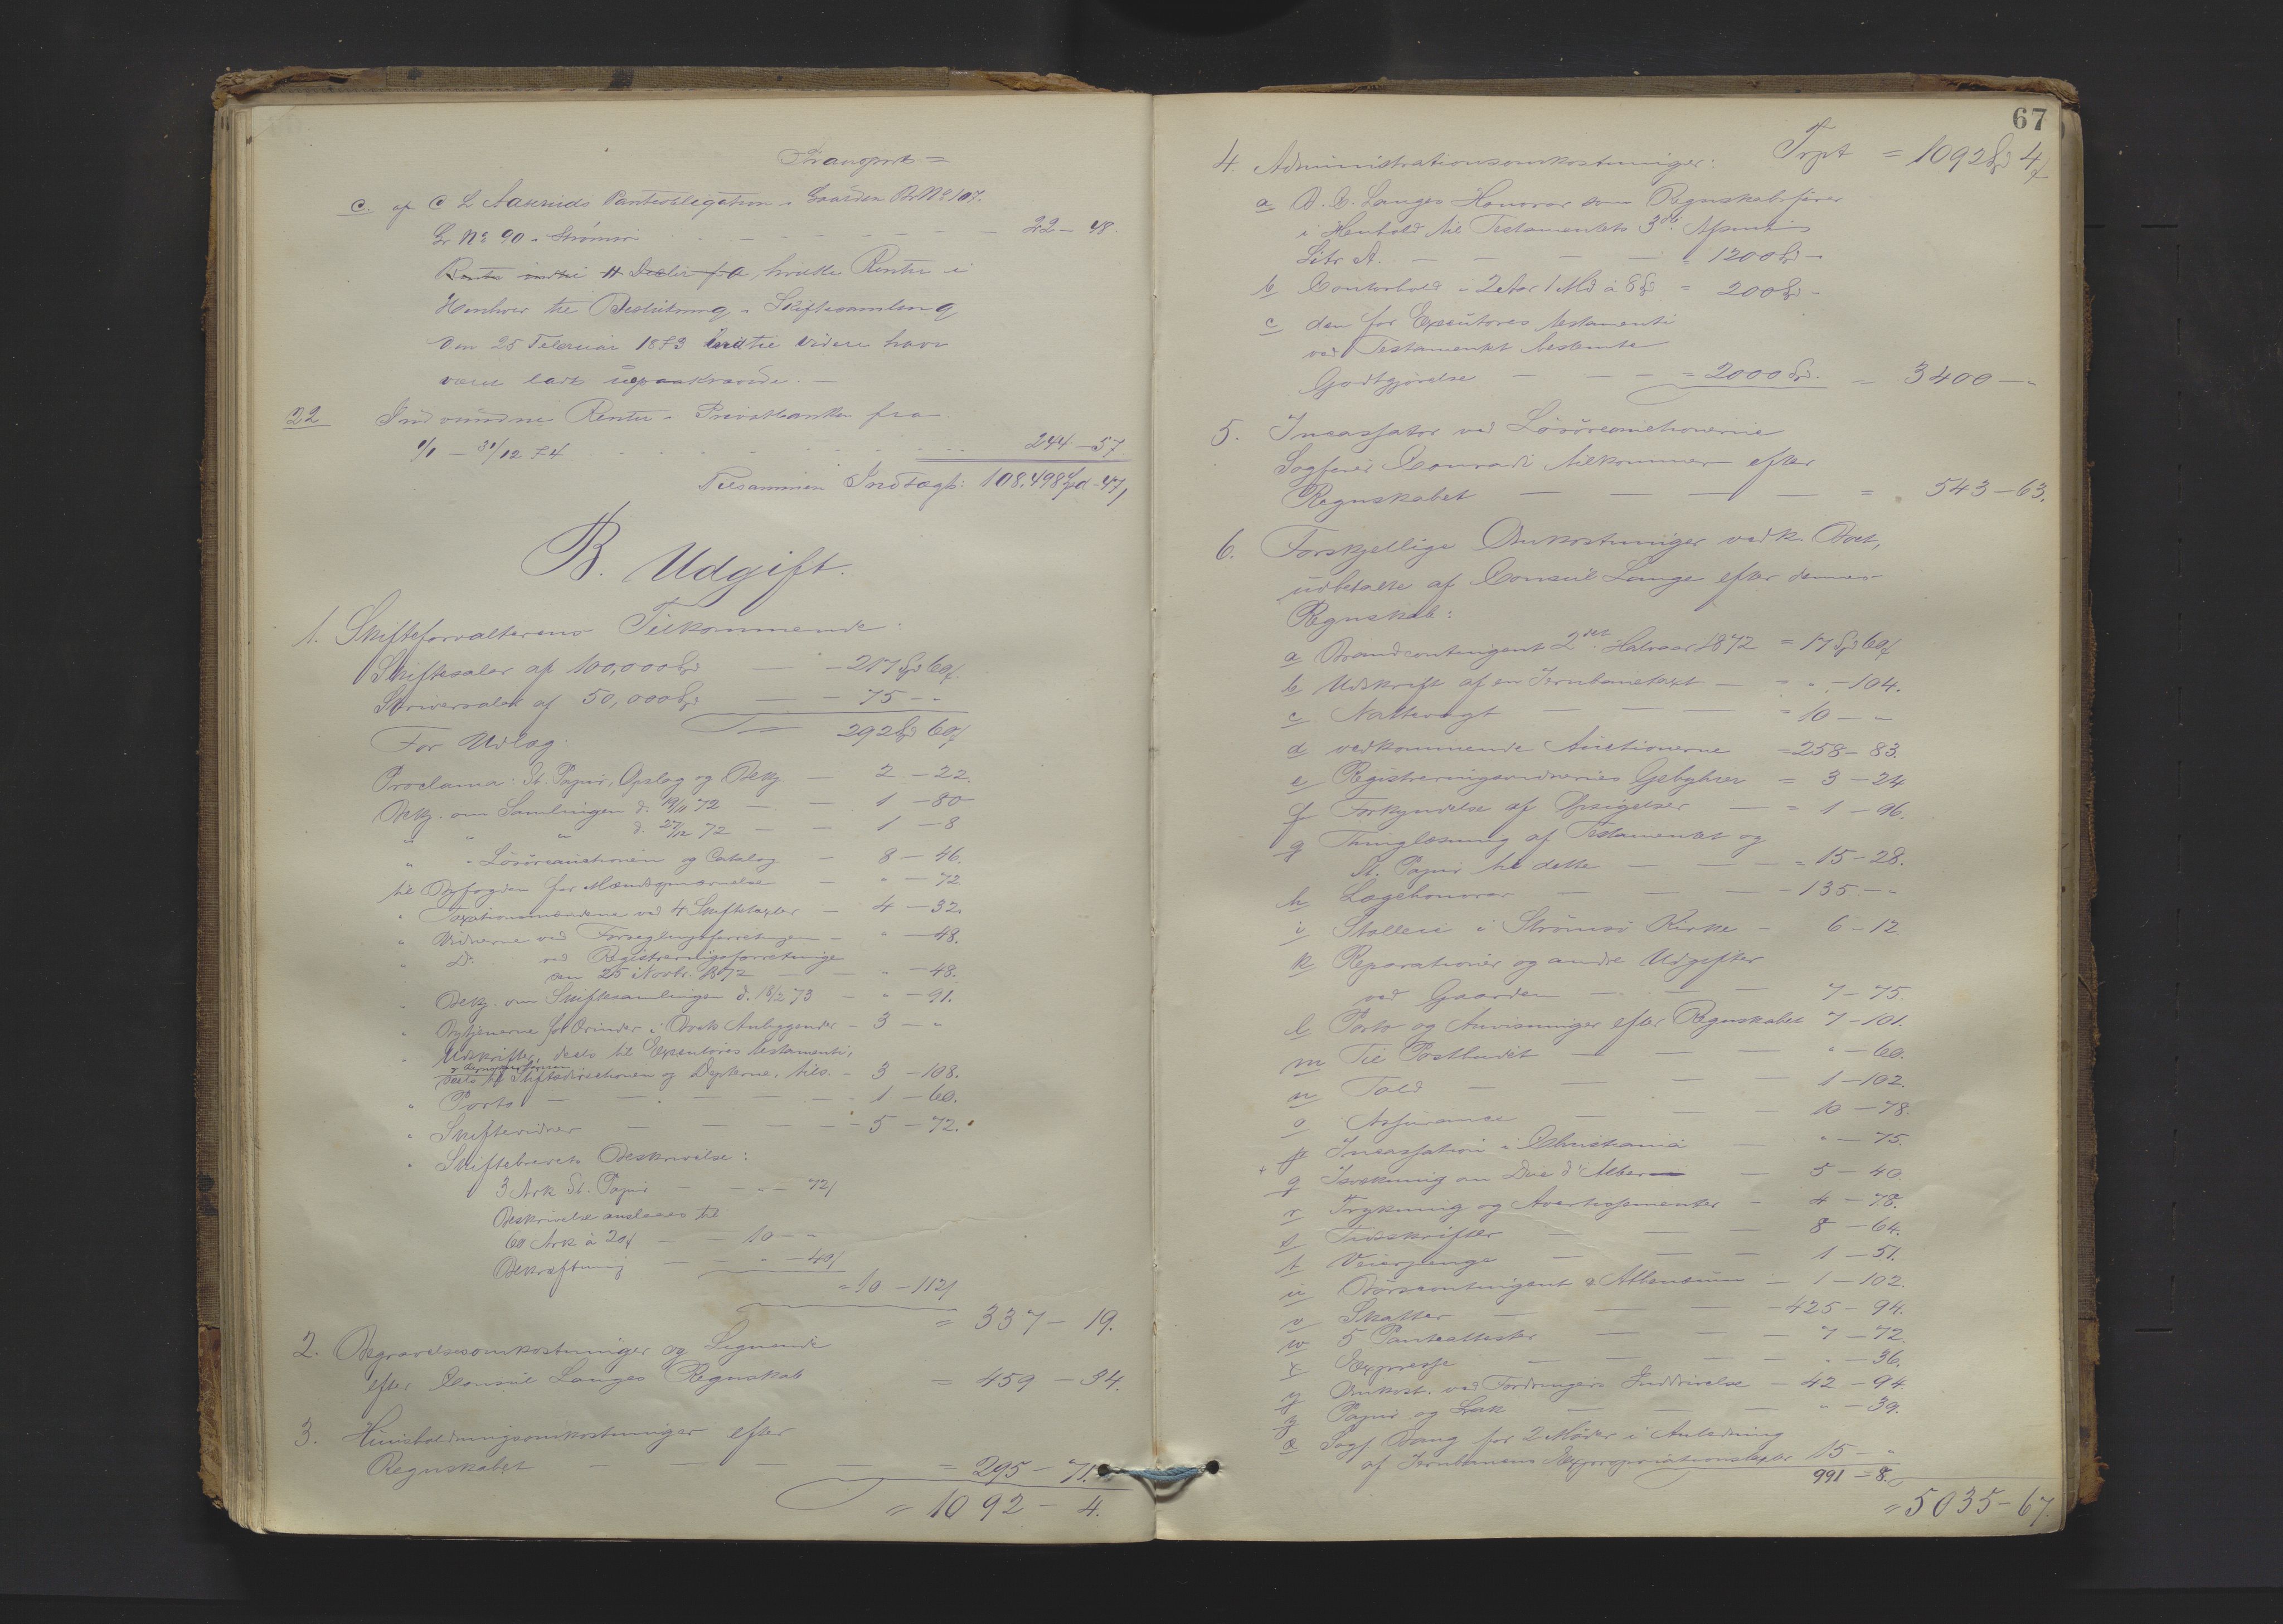 Transport =
c. af C L Aaseruds Panteobligation i Gaarden Br Nº 107.
Gr Nº 90 i Strømsø - - - - - - 22 - 48.
hvilke Renter i
Henhold til Beslutning i Skiftesamling
den 25 Februar 1873 indtil videre have
været ladt upaakrævede. -
22 Indvundne Renter i Privatbanken fra
1/1 - 31/12 74 - - - - - - 244 - 57
Tilsammen Indtægt: 108.498 Spd - 47 ſ
B. Udgift.
1. Skifteforvalterens Tilkommende:
Skiftesalær af 100,000 Spd - - 217 Spd 60 ſ
Skriversalær af 50,000 Spd - - 75 - "
= 292 Spd 60 ſ
For Udlæg:
Proclama: St. Papir, Opslag og Bekj - 2 - 22.
Bekj. om Samlingen d. 19/11 72 - - 1 - 80
" " " d. 27/12 72 - - 1 - 8
" " Løsøreauctionen og Catalog - 8 - 46.
til Byfogden for Mændsopnævnelse - " - 72
" Taxationsmændene ved 4 Skiftetaxter - 4 - 32.
" Vidnerne ved Forseglingsforretningen - " - 48.
" Do. ved Registreringsforretninge
den 25 Novbr. 1872 - - " - 48.
" Bekj. om Skiftesamlingen d. 18/2 73 - " - 91.
" Bytjenerne for Ærinder i Boets Anliggender - 3 - "
" Udskrifter, deels til Executores testamenti,
deels til Stiftsdirectionen og Depterne, tils. - 3 - 108.
" Porto - - - - - 1 - 60.
" Skiftevidner - - - - - 5 - 72.
" Skiftebrevets Beskrivelse:
3 Ark St. Papir - - " - 72 ſ
Beskrivelse ansleaes til
60 Ark à 20 ſ - - 10 - "
Bekræftning - - " - 40 ſ
= 10 - 112 ſ
= 337 - 19.
2. Begravelsesomkostninger og Lignende
efter Consul Langes Regnskab = 459 - 34.
3. Huusholdningsomkostninger efter
Regnskabet - - - - = 295 - 71.
= 1092 - 4.
67
Trpt = 1092 Spd 4 ſ
4. Administrationsomkostninger:
a Langes Honorar som Regnskabsfører
i Henhold til Testamentets 3die Afsnit
Litr A. - - - = 1200 Spd -
b Contorhold i 2 Aar 1 Md à 8 Spd = 200 Spd -
c den for Executores testamenti
ved Testamentet bestemte
Godtgjørelse - - - = 2000 Spd. = 3400 - "
5. Incassator ved Løsøreauctionerne
Sagfører Conradi tilkommer efter
Regnskabet - - - - = 543 - 63.
6. Forskjellige Omkostninger vedk. Boet,
udbetalte af Consul Lange efter dennes
Regnskab:
a Brandcontingent 2det Halvaar 1872 = 17 Spd 60 ſ
b Udskrift af en Jernbanetaxt - = " - 104.
c Nattevagt - - - = 10 - "
d vedkommende Auctionerne = 258 - 83.
e Registreringsvidnernes Gebyhrer = 3 - 24
f Forkyndelse af Opsigelser - = 1 - 96.
g Thinglæsning af Testamentet og
St. Papir til dette - - - = 15 - 28.
h Lægehonorar - - - 135 - "
i Stolleie i Strømsø Kirke - 6 - 12.
k Reparationer og andre Udgifter
ved Gaarden - - - 7 - 75.
l Porto og Anvisninger efter Regnskabet 7 - 101.
m Til Postbudet - - - " - 60.
n Told - - - 1 - 102.
o Assurance - - - 10 - 78.
p Incassation i Christiania - " - 75.
+ q - 5 - 40.
r Trykning og Avertissementer - 4 - 78.
s Tidsskrifter - - - 8 - 64.
t Veierpenge - - - 1 - 51.
u Børscontingent & Athenæum - 1 - 102.
v Skatter - - - 425 - 94.
w 5 Panteattester - - - 7 - 72.
x Expresse - - - " - 36.
y Omkost. ved Fordringers Inddrivelse - 42 - 94.
z Papir og Lak - - - " - 39.
æ Sagf Bang for 2 Møder i Anledning
af Jernbanens Expropriationstaxter 15 - "
991 - 8.
= 5035 - 67.